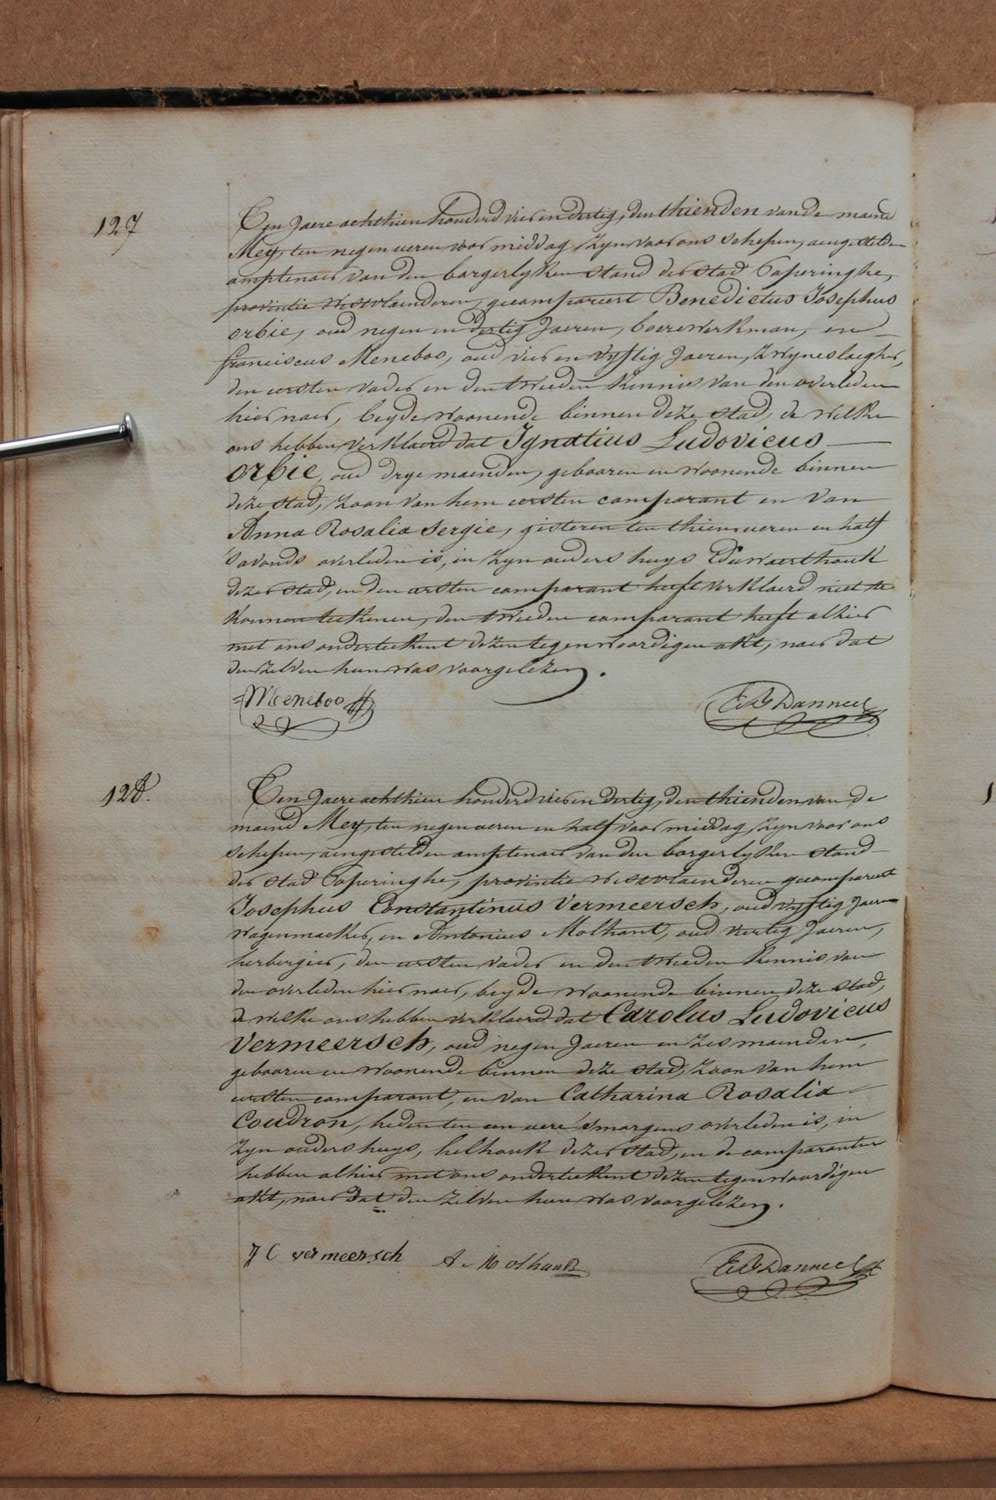 127
Een Jaere achthien honderd vier en dertig, den thienden van de maend
Mey, ten negen ueren voor middag, zyn voor ons schepen, aengestelden
amptenaer van den borgerlyken stand der stad Poperinghe,
provintie westvlaenderen, gecompareert Benedictus Josephus
orbie, oud negen en dertig Jaeren, boerewerkman, en
franciscus Meneboo, oud vier en vyftig Jaeren, zwyneslagher,
den eersten vader en den tweeden kennis van den overleden
hier naer, beyde woonende binnen deze stad, de welke
ons hebben verklaerd dat Ignatius Ludovicus
orbie, oud drye maenden, gebooren en woonende binnen
deze stad, zoon van hem eersten comparant en van
Anna Rosalia Sergie, gisteren ten thien ueren en half
's avonds overleden is, in zyn ouders huys Eduwaerthoek
dezer stad, en den eersten comparant heeft verklaerd niet te
konnen teekenen, den tweeden comparant heeft alhier
met ons onderteekent dezen tegenwoordigen akt, naer dat
den zelven hun was voorgelezen.
Meneboo
E D Danneel
128.
Een Jaere achthien honderd vier en dertig, den thienden van de
maend Mey, ten negen ueren en half voor middag, zyn voor ons
schepen, aengestelden amptenaer van den borgerlyken stand
der stad Poperinghe, provintie westvlaenderen gecompareert
Josephus Constantinus Vermeersch, oud vyftig Jaeren
wagenmaeker, en Antonius Molhant, oud veertig Jaeren,
herbergier, den eersten vader en den tweeden kennis van
den overleden hier naer, beyde woonende binnen deze stad,
de welke ons hebben verklaerd dat Carolus Ludovicus
Vermeersch, oud negen Jaeren en zes maenden,
gebooren en woonende binnen deze stad, zoon van hem
eersten comparant, en van Catharina Rosalia
Coudron, heden ten een uere 's morgens overleden is, in
zyn ouders huys, helhoek dezer stad, en de comparanten
hebben alhier met ons onderteekent dezen tegenwoordigen
akt, naer dat den zelven hun was voorgelezen.
J C vermeersch
A. Molhant
E D Danneel